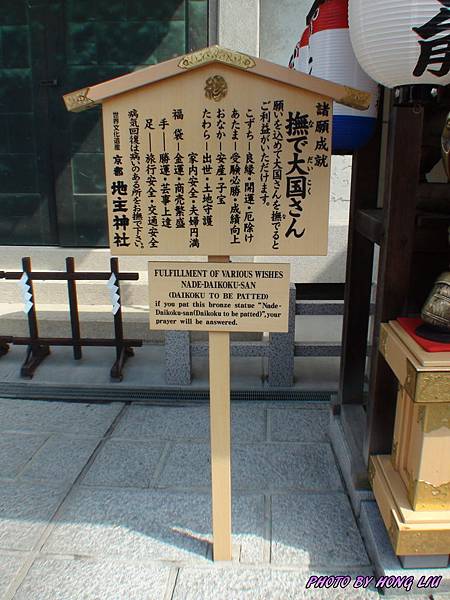 諸願成就
撫で大国さん
なでだいこく
願いを込めて大国さんを撫でると
ご利益がいただけます。
こずち―良縁・開運・厄除け
あたま―受験必勝・成績向上
おなか―安産・子宝
たわら―出世・土地守護
家内安全・夫婦円満
福袋―金運・商売繁盛
手―勝運・芸事上達
足―旅行安全・交通安全
病気回復は病いのある所をお撫で下さい。
世界文化遺産 京都 地主神社
FULFILLMENT OF VARIOUS WISHES
NADE-DAIKOKU-SAN
(DAIKOKU TO BE PATTED)
if you pat this bronze statue "Nade-
Daikoku-san(Daikoku to be patted)",your
prayer will be answered.
PHOTO BY HONG LIU